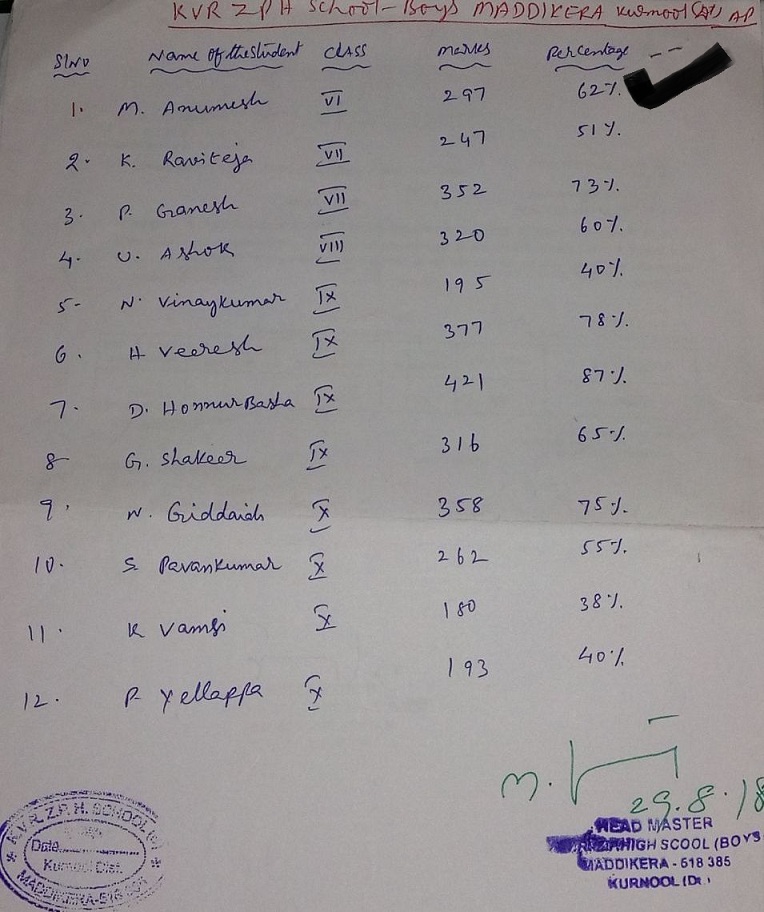 KVR Z P H School-Boys MADDIKERA Kurnool (Dt) AP
Sl.No Name of the student CLASS marks Percentage
1. M. Anumesh VI 297 62%
2. K. Raviteja VII 247 51%
3. P. Ganesh VII 352 73%
4. U. Ashok VIII 320 60%
5- N. Vinaykumar IX 195 40%
6. H Veeresh IX 377 78%
7. D. Honnur Basha IX 421 87%
8- G. Shakeer IX 316 65%
9. N. Giddaiah X 358 75%
10. S. Pavankumar X 262 55%
11. K Vamsi X 180 38%
12. P Yellappa X 193 40%
M.
29.8.18
HEAD MASTER
HIGH SCOOL (BOYS
MADDIKERA - 518 385
KURNOOL (Dt.)
K.V.R. Z.P. H. SCHOOL (B)
Date
Kurnool Dist.
MADDIKERA-518